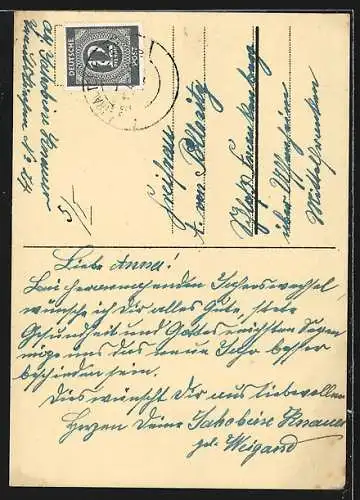 DEUTSCHE POST
12
Abs. Jakobine Knauer
Freifrau
A. von Pöllnitz
Schloß Frankenberg
über Uffenheim
Mittelfranken
Liebe Anna!
Bei herannahenden Jahreswechsel
wünsche ich Dir alles Gute, stets
Gesundheit und Gottes reichsten Segen
möge uns das neue Jahr besser
beschieden sein.
Dies wünscht Dir aus liebevollen
Herzen Deine Jakobine Knauer
geb. Weigand